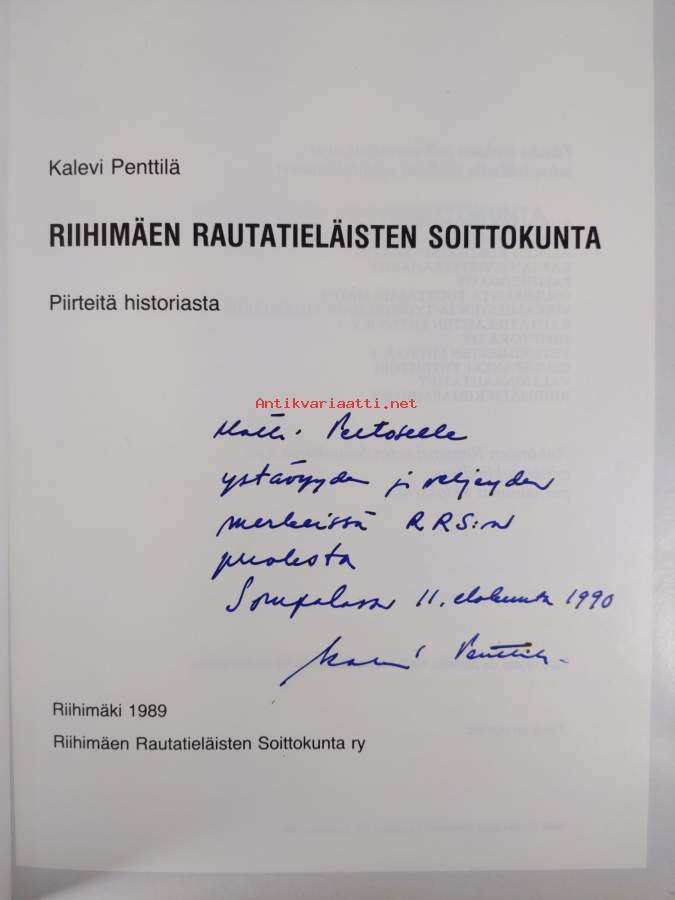 Kalevi Penttilä
RIIHIMÄEN RAUTATIELÄISTEN SOITTOKUNTA
Piirteitä historiasta
Antikvariaatti.net
Matti Peltoselle
ystävyyden ja veljeyden
merkeissä RRS:n
puolesta
11. elokuuta 1990
Kalevi Penttilä
Riihimäki 1989
Riihimäen Rautatieläisten Soittokunta ry